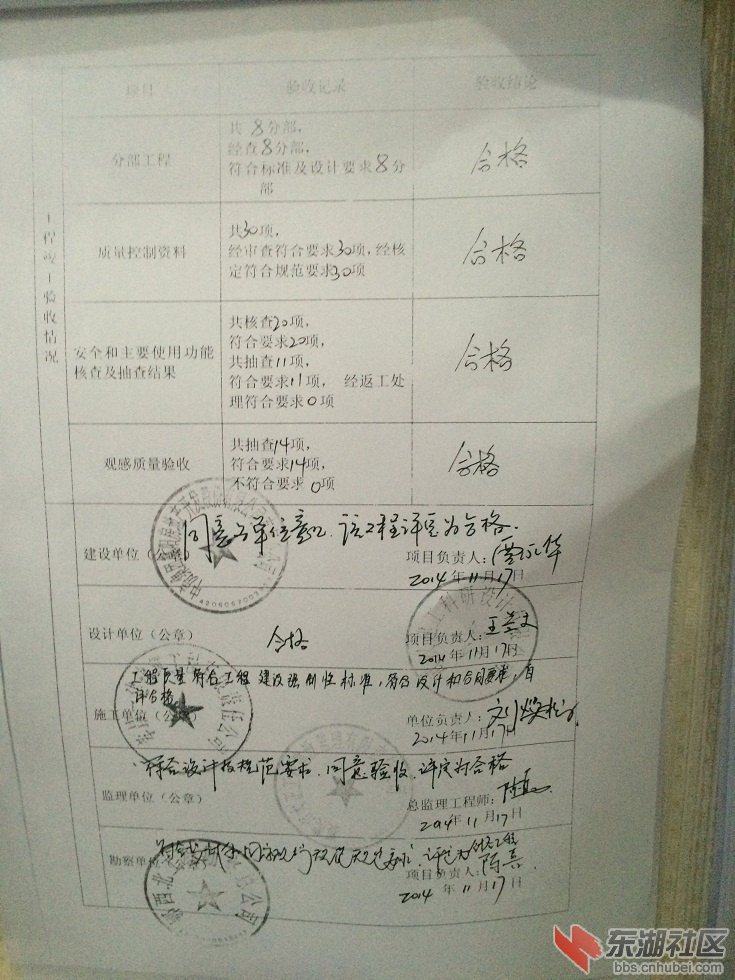 项目 验收记录 验收结论
工程竣工验收情况
分部工程
共 8分部,
经查8分部,
符合标准及设计要求8分
部
合格
质量控制资料
共30项,
经审查符合要求30项,经核
定符合规范要求30项
合格
安全和主要使用功能
核查及抽查结果
共核查20项,
符合要求20项,
共抽查11项,
符合要求11项, 经返工处
理符合要求0项
合格
观感质量验收
共抽查14项,
符合要求14项,
不符合要求 0项
合格
同意各单位意见,该工程评定为合格.
建设单位(公章)
项目负责人:
2014年11月17日
设计单位(公章)
合格
项目负责人:
2014年11月17日
工程质量符合工程建设强制性标准,符合设计和合同要求,自
评合格
施工单位(公章)
单位负责人:
2014年11月17日
符合设计及规范要求.同意验收.评定为合格
监理单位(公章)
总监理工程师:
2014年11月17日
勘察单位(公章)
项目负责人:
2014年11月17日
东湖社区
bbs.cnhubei.com